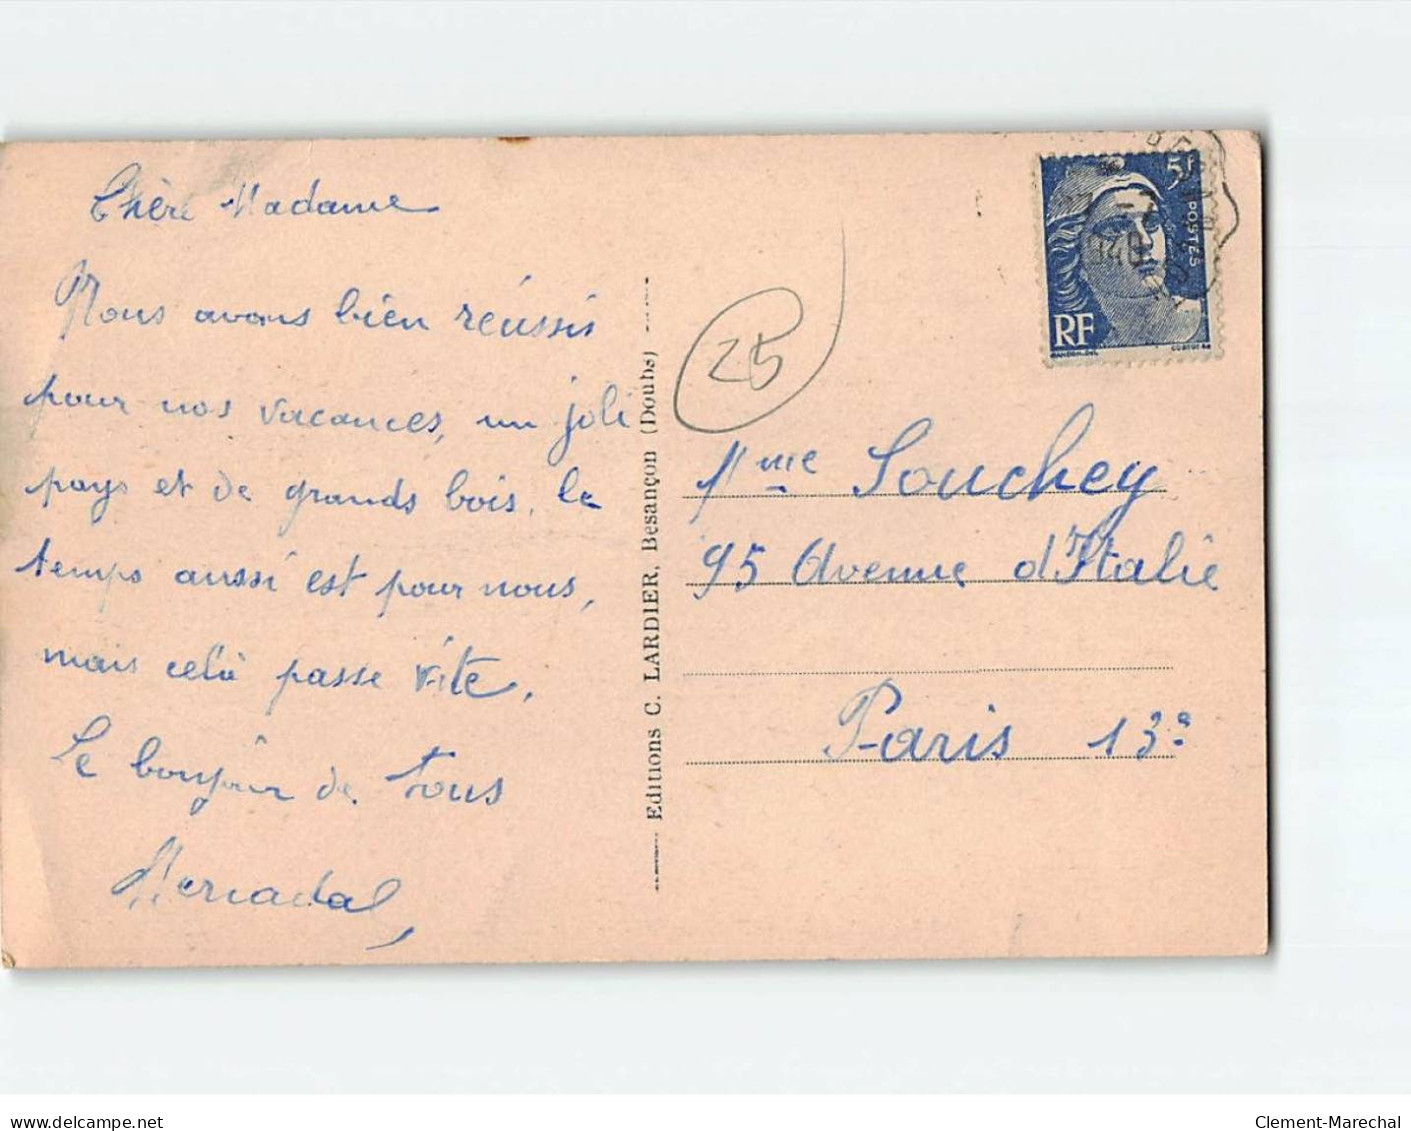 Chère Madame
Nous avons bien réussis
pour nos vacances, un joli
pays et de grands bois, le
temps aussi est pour nous,
mais celà passe vite.
Le bonjour de tous
Mercadal
Editions C. LARDIER, Besançon (Doubs)
25
5F
POSTES
RF
Mme Souchey
95 Avenue d'Italie
Paris 13e
delcampe.net
Clement-Marechal